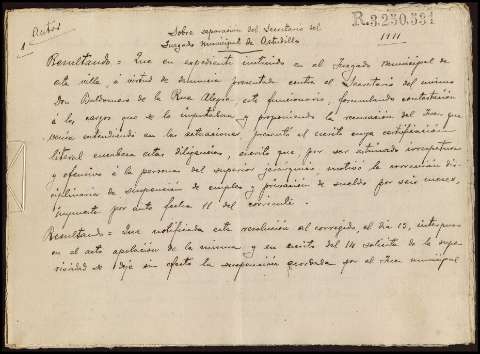 Autos
R.3.230.331
1111
Sobre separación del Secretario del
Juzgado municipal de Astudillo
Resultando = Que en expediente instruido en el Juzgado municipal de
esta villa, á virtud de denuncia presentada contra el Secretario del mismo
Don Baldomero de la Rua Alegre, este funcionario, formulando contestación
á los cargos que se le imputaban y proponiendo la recusación del Juez que
venia entendiendo en las actuaciones, presentó el escrito cuya certificación
literal encabeza estas diligencias, escrito que por ser estimado irrespetuoso
y ofensivo á la persona del superior jerárquico, motivó la corrección dis-
ciplinaria de suspensión de empleo y privación de sueldo por seis meses,
impuesta por auto fecha 11 del corriente.
Resultando = Que notificada esta resolución al corregido, el dia 13, interpuso
en el acto apelación de la misma y en escrito del 14 solicita de la supe-
rioridad se deje sin efecto la suspensión acordada por el Juez municipal